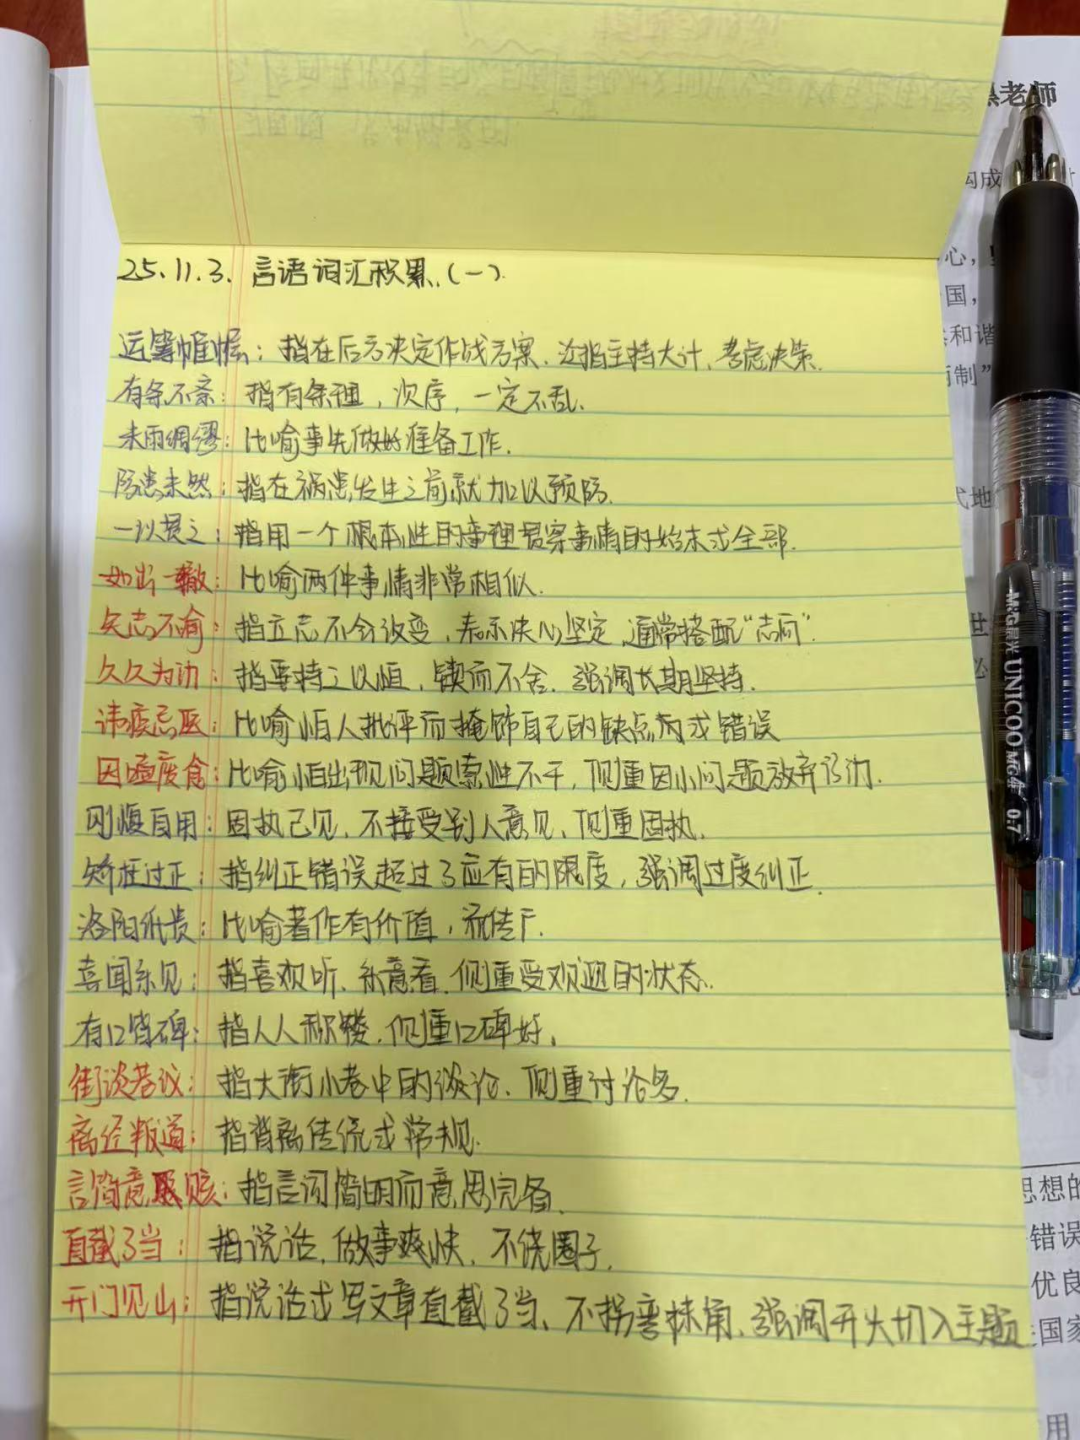 老师
构成
25.11.3. 言语词汇积累.(一).
心,
国,
和谐
运筹帷幄:指在后方决定作战方案、泛指主持大计,考虑决策.
制”
有条不紊:指有条理,次序,一定不乱.
未雨绸缪:比喻事先做好准备工作.
防患未然:指在祸患发生之前就加以预防.
式地
一以贯之:指用一个根本性的事理贯穿事情的始末或全部.
如出一辙:比喻两件事情非常相似.
矢志不渝:指立志不会改变,表示决心坚定,通常搭配“志向”.
世
久久为功:指要持之以恒,锲而不舍.强调长期坚持.
必
讳疾忌医:比喻怕人批评而掩饰自己的缺点和或错误
因噎废食:比喻怕出现问题索性不干,侧重因小问题放弃该做.
M&G晨光 UNICOO MG 0.7
刚愎自用:固执己见,不接受别人意见,侧重固执.
矫枉过正:指纠正错误超过了应有的限度,强调过度纠正.
洛阳纸贵:比喻著作有价值,流传广.
喜闻乐见:指喜欢听、乐意看.侧重受欢迎的状态.
有口皆碑:指人人称赞,侧重口碑好.
街谈巷议:指大街小巷中的谈论、侧重讨论多.
离经叛道:指背离传统或常规.
言简意赅:指言词简明而意思完备.
思想的
直截了当:指说话,做事爽快,不绕圈子.
错误
优良
开门见山:指说话或写文章直截了当、不拐弯抹角,强调开头切入主题
国家
用